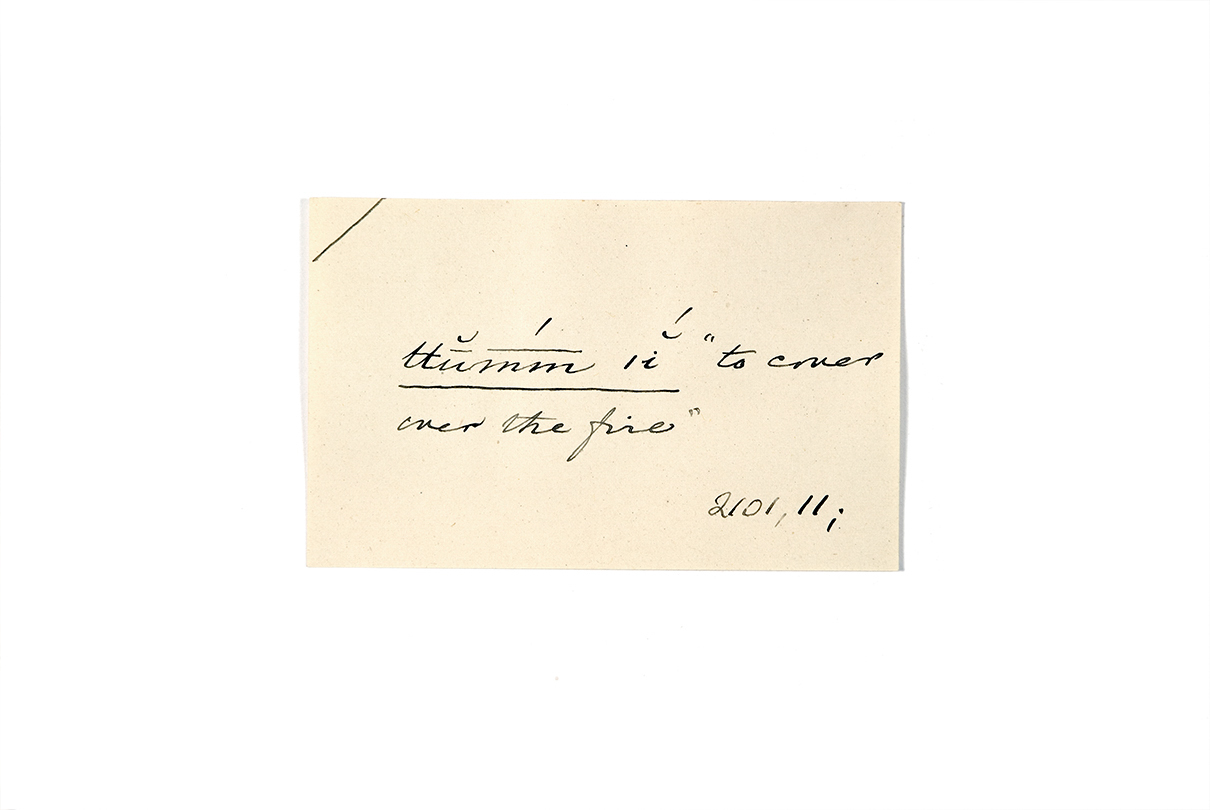 ttū̆m̄́m̄ ǀĭ́ “to cover
over the fire”
2101, 11;